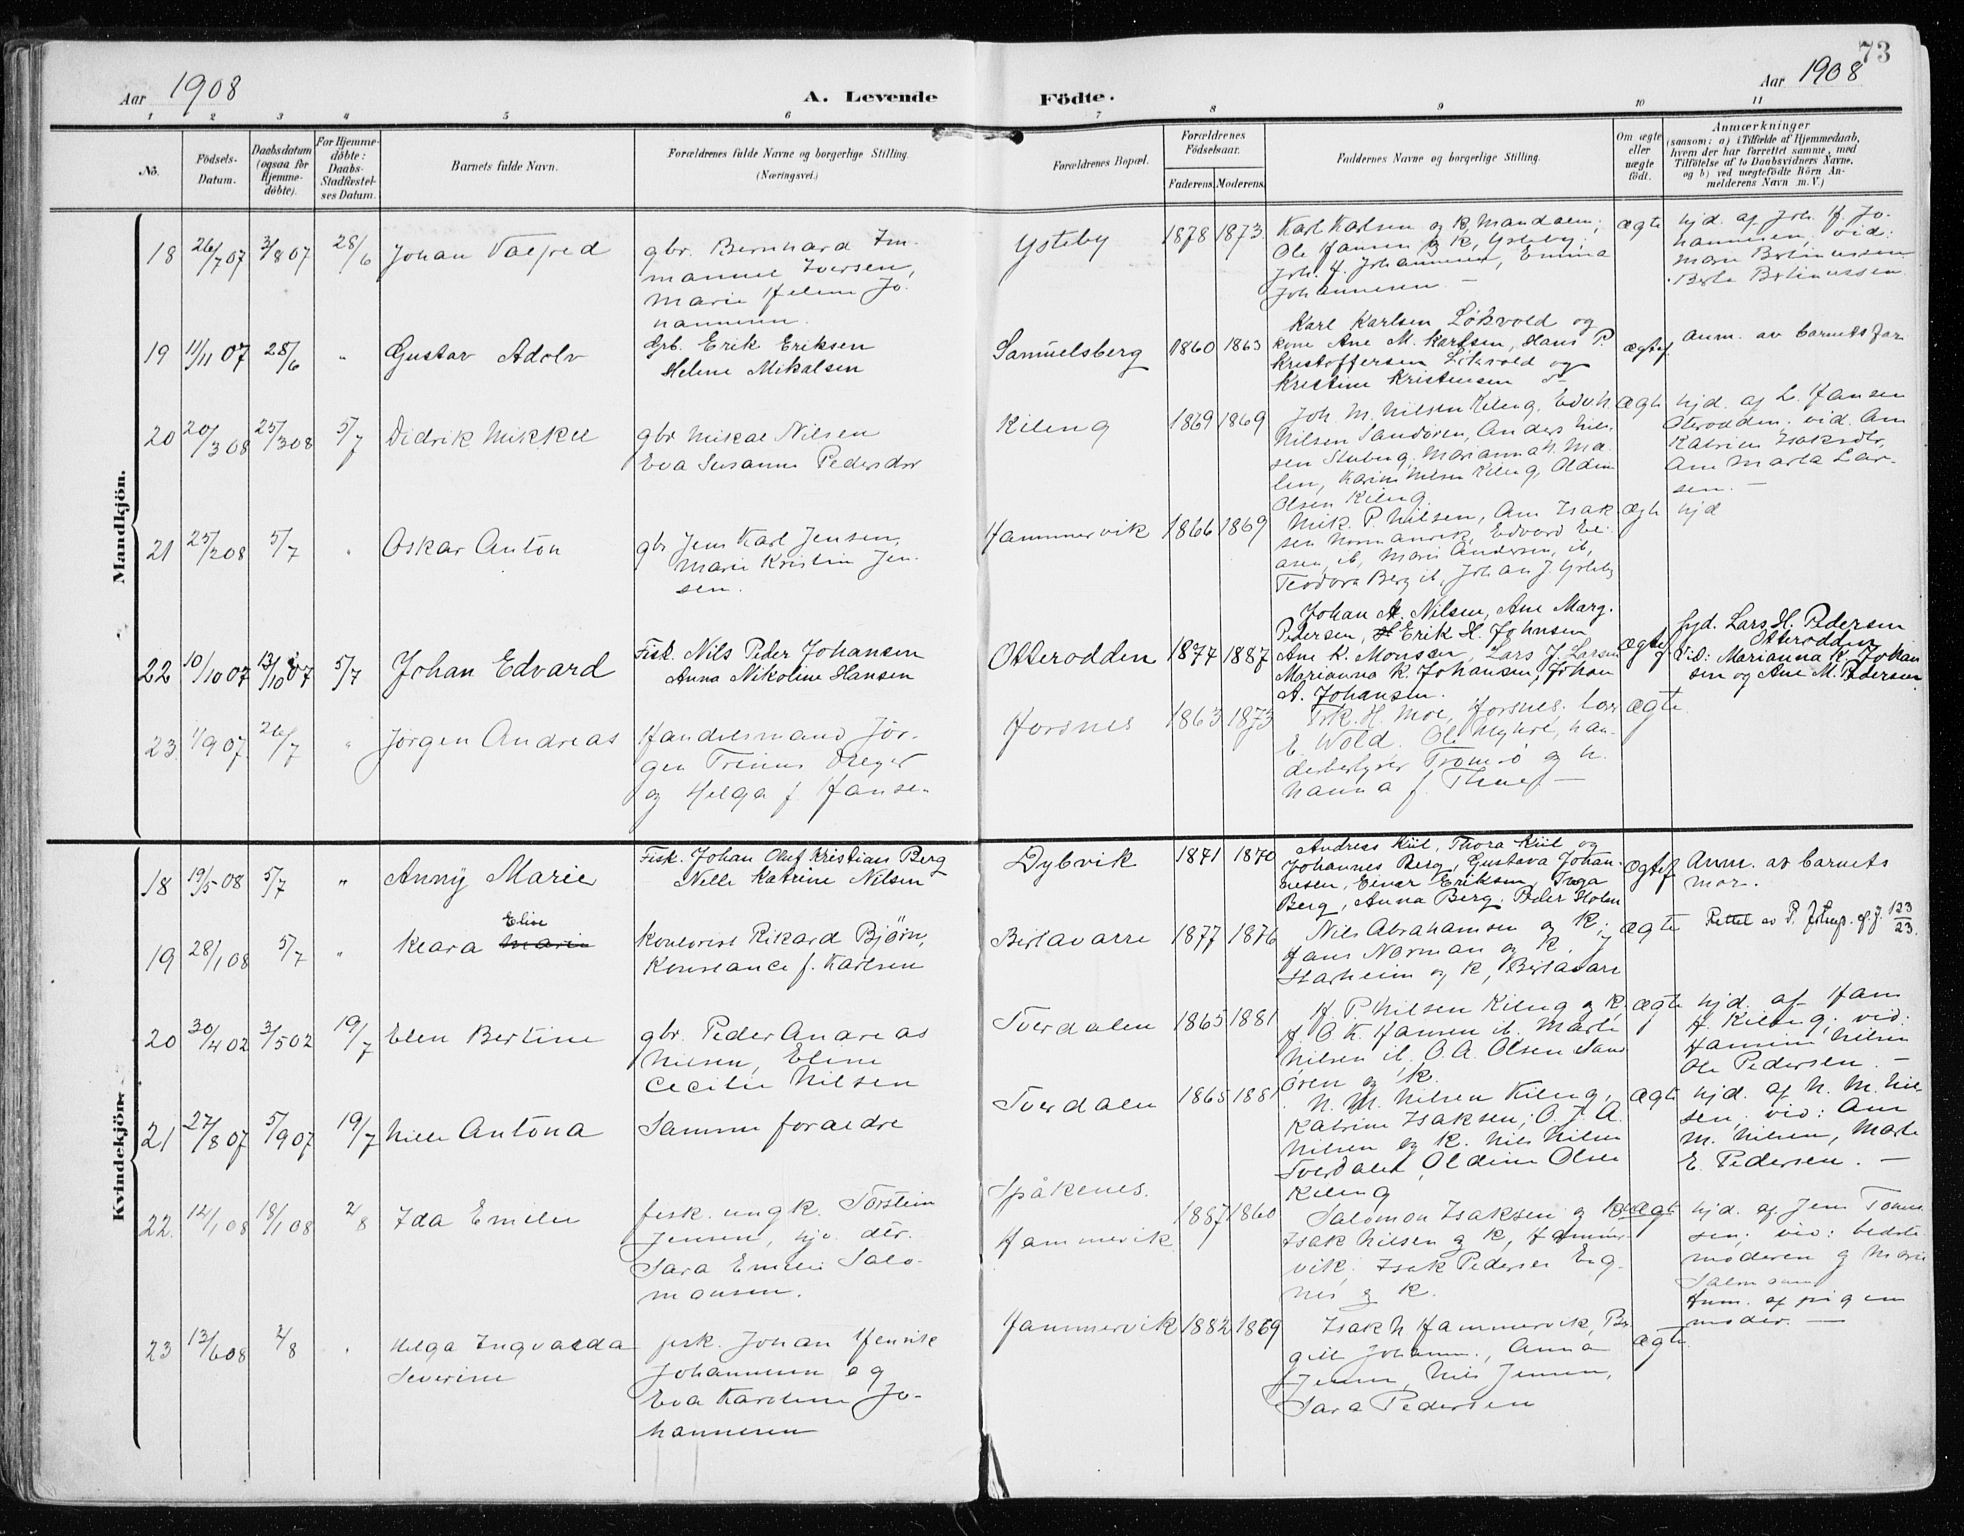 73
Aar 1908
A. Levende Födte.
Aar 1908
1 2 3 4 5 6 7 8 9 10 11
No.
Födsels-Datum.
Daabsdatum (ogsaa for Hjemme-döbte).
For Hjemme-döbte: Daabs-Stadfæstel-ses Datum.
Barnets fulde Navn.
Forældrenes fulde Navne og borgerlige Stilling.
(Næringsvei.)
Forældrenes Bopæl.
Forældrenes Födselsaar.
Faderens. Moderens.
Faddernes Navne og borgerlige Stilling.
Om ægte eller uægte födt.
Anmærkninger
(saasom: a) i Tilfælde af Hjemmedaab,
hvem der har forrettet samme, med
Tilföielse af to Daabsvidners Navne,
og b) ved uægtefödte Börn An-
melderens Navn m. V.)
Mandkjön.
18 26/7 07 3/8 07 28/6 Johan Valfred
gbr. Bernhard Em-
manuel Iversen,
Marie Helene Jo-
hannesen.
Ysteby 1878 1873
Karl Karlsen og K, Mandalen;
Ole Hansen og K, Ysteby;
Joh. H. Johannesen, Emma
Johannesen. —
ægte
hjd. af Joh. H. Jo-
hannesen, vid:
Marie Bertinussen
Berta Bertinussen
19 11/11 07 28/6 " Gustav Adolv
Grb. Erik Eriksen
Helene Mikalsen
Samuelsberg 1860 1863
Karl Karlsen Løkvold og
kone Ane M. Karlsen, Hans P.
Kristoffersen Løkvold og
Kristine Kristensen
ægtef
Anm. av barnets far
20 20/3 08 25/3 08 5/7 Didrik Mikkel
gbr Mikal Nilsen
Eva Susanne Pedersdtr
Kileng 1869 1869
Joh. M. Nilsen Kileng, Edv. N.
Nilsen Sandøren, Anders Nil-
sen Stuberg, Marianna N. Mæ-
len, Karin Nilsen Kileng, Oldine
Olsen Kileng.
ægte
hjd. af L. Hansen
Oterodden. vid. Ane
Katrine Isaksdtr,
Ane Marta Lar-
sen. —
21 25/2 08 5/7 " Oskar Anton
gbr Jens Karl Jensen,
Marie Kristine Jen-
sen.
Hammervik 1866 1869
Mik. P. Nilsen, Ane Isak
sen Normannvik, Edvard
Marie Andersen, ib,
Teodora Berg ib, Johan J. Ysteby
ægte
hjd
22 10/10 07 13/10 07 5/7 Johan Edvard
Fisk. Nils Peder Johansen
Anna Nikoline Hansen
Otterodden 1877 1887
Johan A. Nilsen, Ane Marg.
Pedersen, Erik H. Johnsen
Ane K. Monssen, Lars J. Larsen
Marianna K. Johansen, Johan
A. Johansen.
ægtef
hjd. Lars H. Pedersen
Otterodden
Vid: Marianna K. Johan
sen og Ane M. Pedersen.
23 1/9 07 26/7 " Jörgen Andreas
Handelsmand Jör-
gen Trinius Dreyer
og Helga f. Hansen
Horsnes 1863 1873
Frk. H. Moe, Horsnes, Lars
E. Wold. Ole Myhre, han-
delsbestyrer Tromsø og
Hanna f. Thues —
ægte
Kvindekjön.
18 19/5 08 5/7 " Anny Marie
Fisk. Johan Oluf Kristian Berg
Nelle Katrine Nilsen
Dybvik 1871 1870
Andreas Kiil, Thora Kiil og
Johannes Berg, Gustava Johan-
nesen, Einar Eriksen, Inga
Berg, Anna Berg. Peder Holm
Ægtef
Anm. av barnets
mor.
19 28/1 08 5/7 " Klara Marie Elise
Kontorist Rikard Bjørn,
Konstance f. Karlsen
Birtavarre 1877 1876
Nils Abrahamsen og K;
Hans Norman og K.
Starheim og K, Birtavarre
ægte
Rettet av P. 123/23.
20 30/4 02 3/5 02 19/7 Elen Bertine
gbr. Peder Andreas
Nilsen, Eline
Cecilie Nilsen
Tverdalen 1865 1881
H. P. Nilsen Kileng og K,
O. K. Hansen ib. Marte
Nilsen ib, O. A. Olsen Sand
øren og K.
ægte
hjd. af Hans
H. Kileng; vid:
Hansine Nilsen
Ole Pedersen. —
21 27/8 07 5/9 07 19/7 Nille Antona
Samme forældre
Tverdalen 1865 1881
N. M. Nilsen Kileng,
Katrine Isaksen; O. J. A.
Nilsen og K. Nils Nilsen
Tverdalen, Oldine Olsen
Kileng
ægte
hjd. af N. M. Nil-
sen. vid: Ane
M. Nilsen, Marte
E. Pedersen. —
22 12/1 08 18/1 08 2/8 Ida Emilie
fisk. ungk. Torstein
Jensen, hjv. dtr.
Sara Emilie Salo-
monsen.
Spåkenes.
Hammervik 1887 1860
Salomon Isaksen og K
Isak Nilsen og K, Hammer-
vik, Isak Pedersen Eng
nes og K.
uægte
hjd. af Jens Tomas
sen: vid: bedste
moderen og Marie
Salomonsen
Anm. af pigens
moder. —
23 13/6 08 2/8 " Helga Ingvalda
Severine
fisk. Johan Henrik
Johannesen og
Eva Karoline Jo-
hannesen
Hammervik 1882 1869
Isak N Hammervik, Be
gitte Johanns., Anna
Jensen, Nils Jensen,
Sara Pedersen
ægte